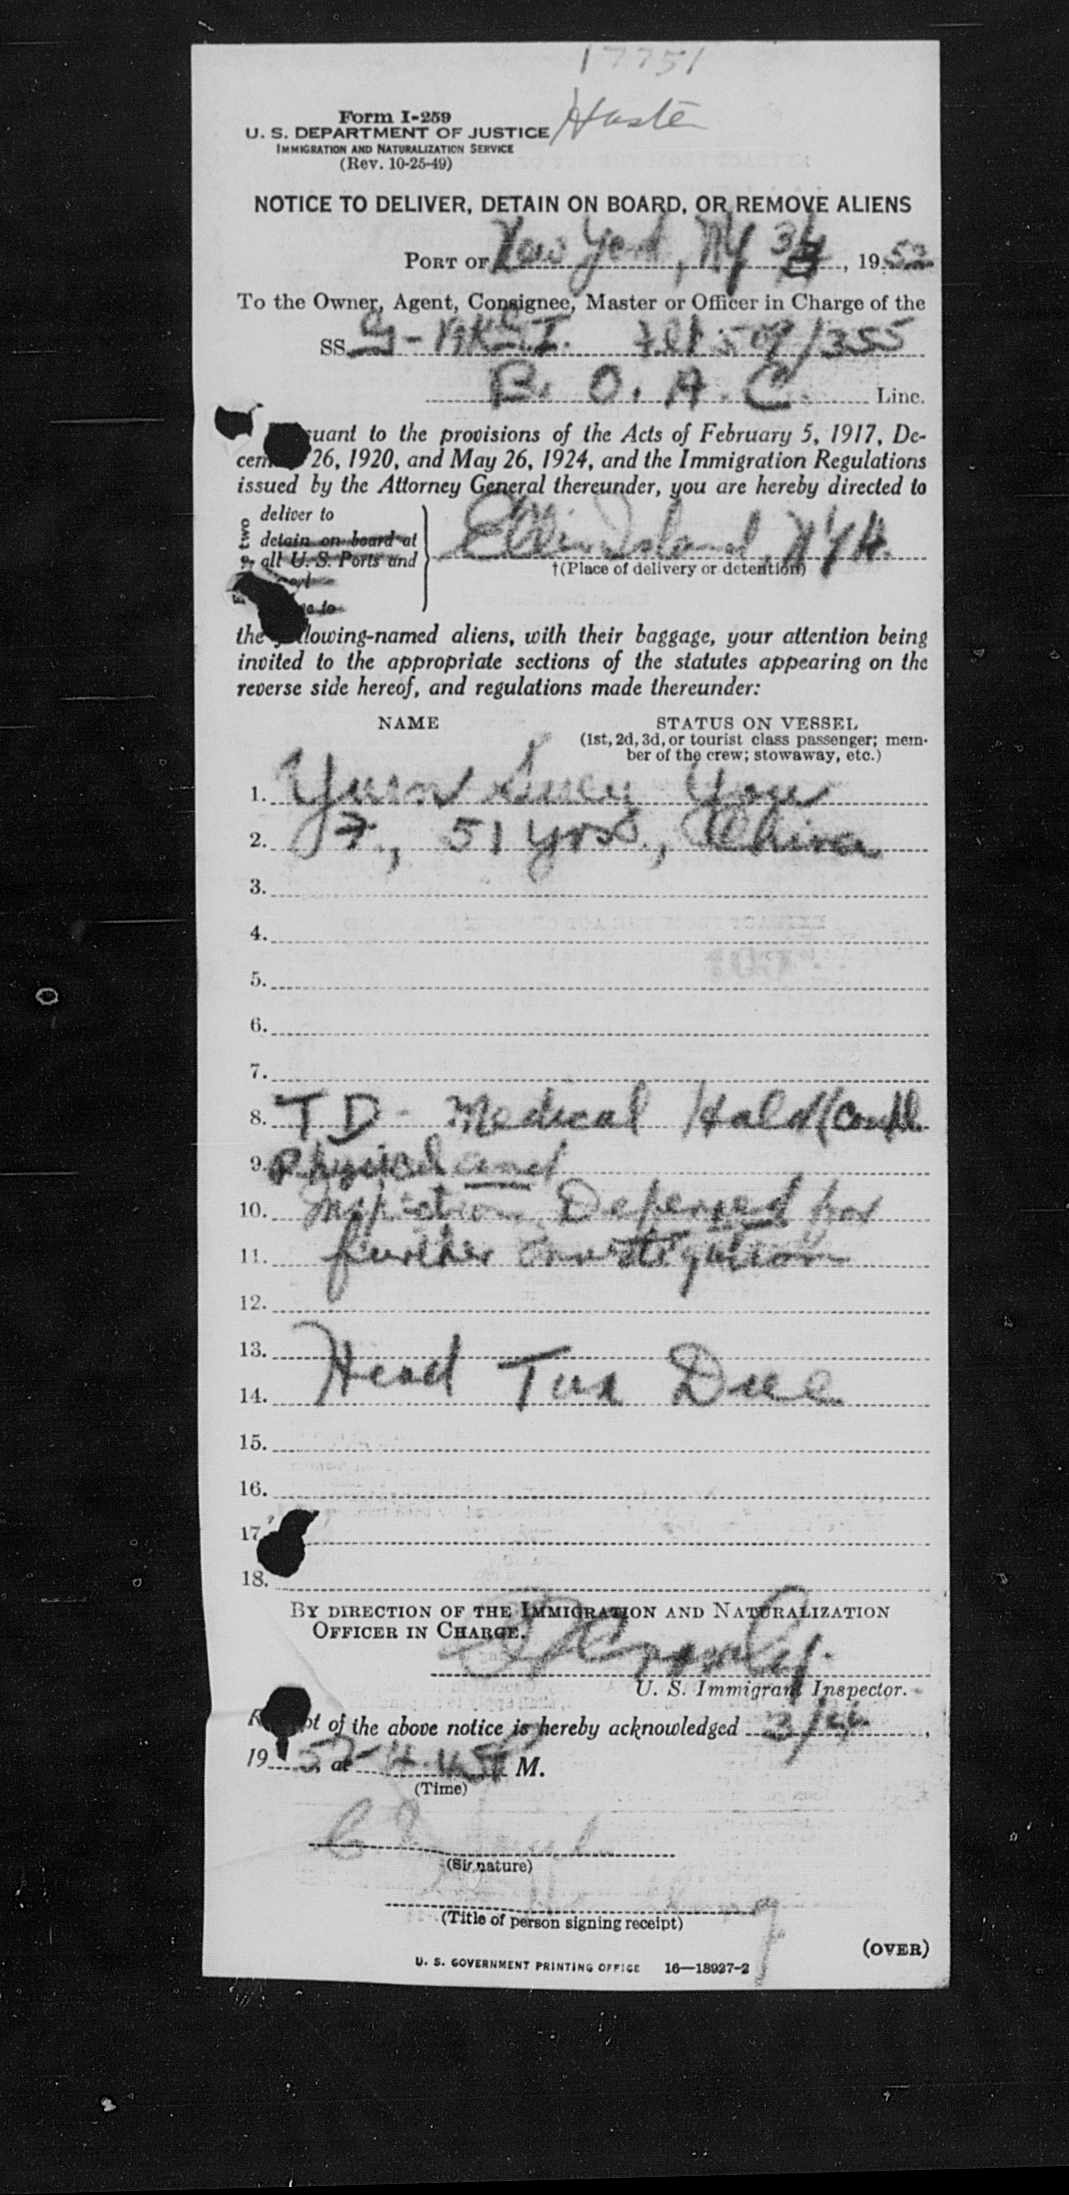 17751
Form I-259
U. S. DEPARTMENT OF JUSTICE
IMMIGRATION AND NATURALIZATION SERVICE
(Rev. 10-25-49)
NOTICE TO DELIVER, DETAIN ON BOARD, OR REMOVE ALIENS
PORT OF New York, NY 3/4, 1952
To the Owner, Agent, Consignee, Master or Officer in Charge of the
SS. Flt 509/355
B. O. A. C. Line.
suant to the provisions of the Acts of February 5, 1917, De-
cem 26, 1920, and May 26, 1924, and the Immigration Regulations
issued by the Attorney General thereunder, you are hereby directed to
deliver to
detain on board at
all U. S. Ports and
Ellis Island, NYH.
†(Place of delivery or detention)
the lowing-named aliens, with their baggage, your attention being
invited to the appropriate sections of the statutes appearing on the
reverse side hereof, and regulations made thereunder:
NAME STATUS ON VESSEL
(1st, 2d, 3d, or tourist class passenger; mem-
ber of the crew; stowaway, etc.)
1. You
2. 7, 51 yrs., China
3.
4.
5.
6.
7.
8. TD - Medical Hold (Compl.
9. Physical and
10. Inspection Deferred for
11. further investigation
12.
13. Head Tax Due
14.
15.
16.
17.
18.
BY DIRECTION OF THE IMMIGRATION AND NATURALIZATION
OFFICER IN CHARGE.
U. S. Immigrant Inspector.
of the above notice is hereby acknowledged 3/4,
1952 at 4.45 P M.
(Time)
(Signature)
(Title of person signing receipt)
(OVER)
U. S. GOVERNMENT PRINTING OFFICE 16—18927-2